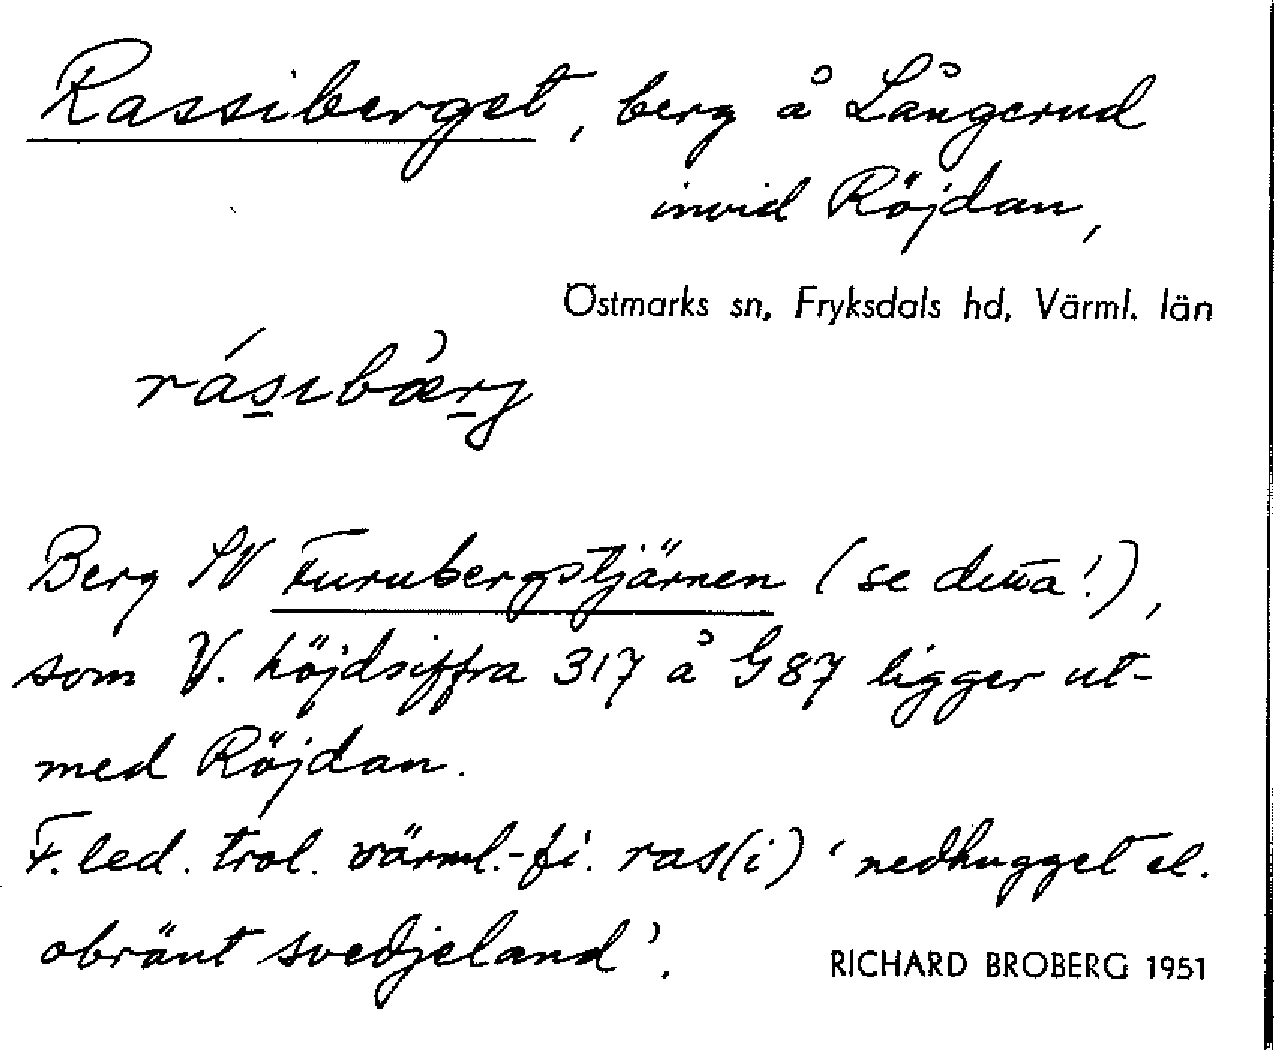 Rassiberget, berg å Långerud
invid Röjdan,
Östmarks sn, Fryksdals hd, Värml. län
rásıbæ̀rj
Berg SV Furubergstjärnen (se detta!),
som V. höjdsiffra 317 å G87 ligger ut-
med Röjdan.
F. led. trol. värml.-fi. ras(i) 'nedhugget el.
obränt svedjeland'.
RICHARD BROBERG 1951